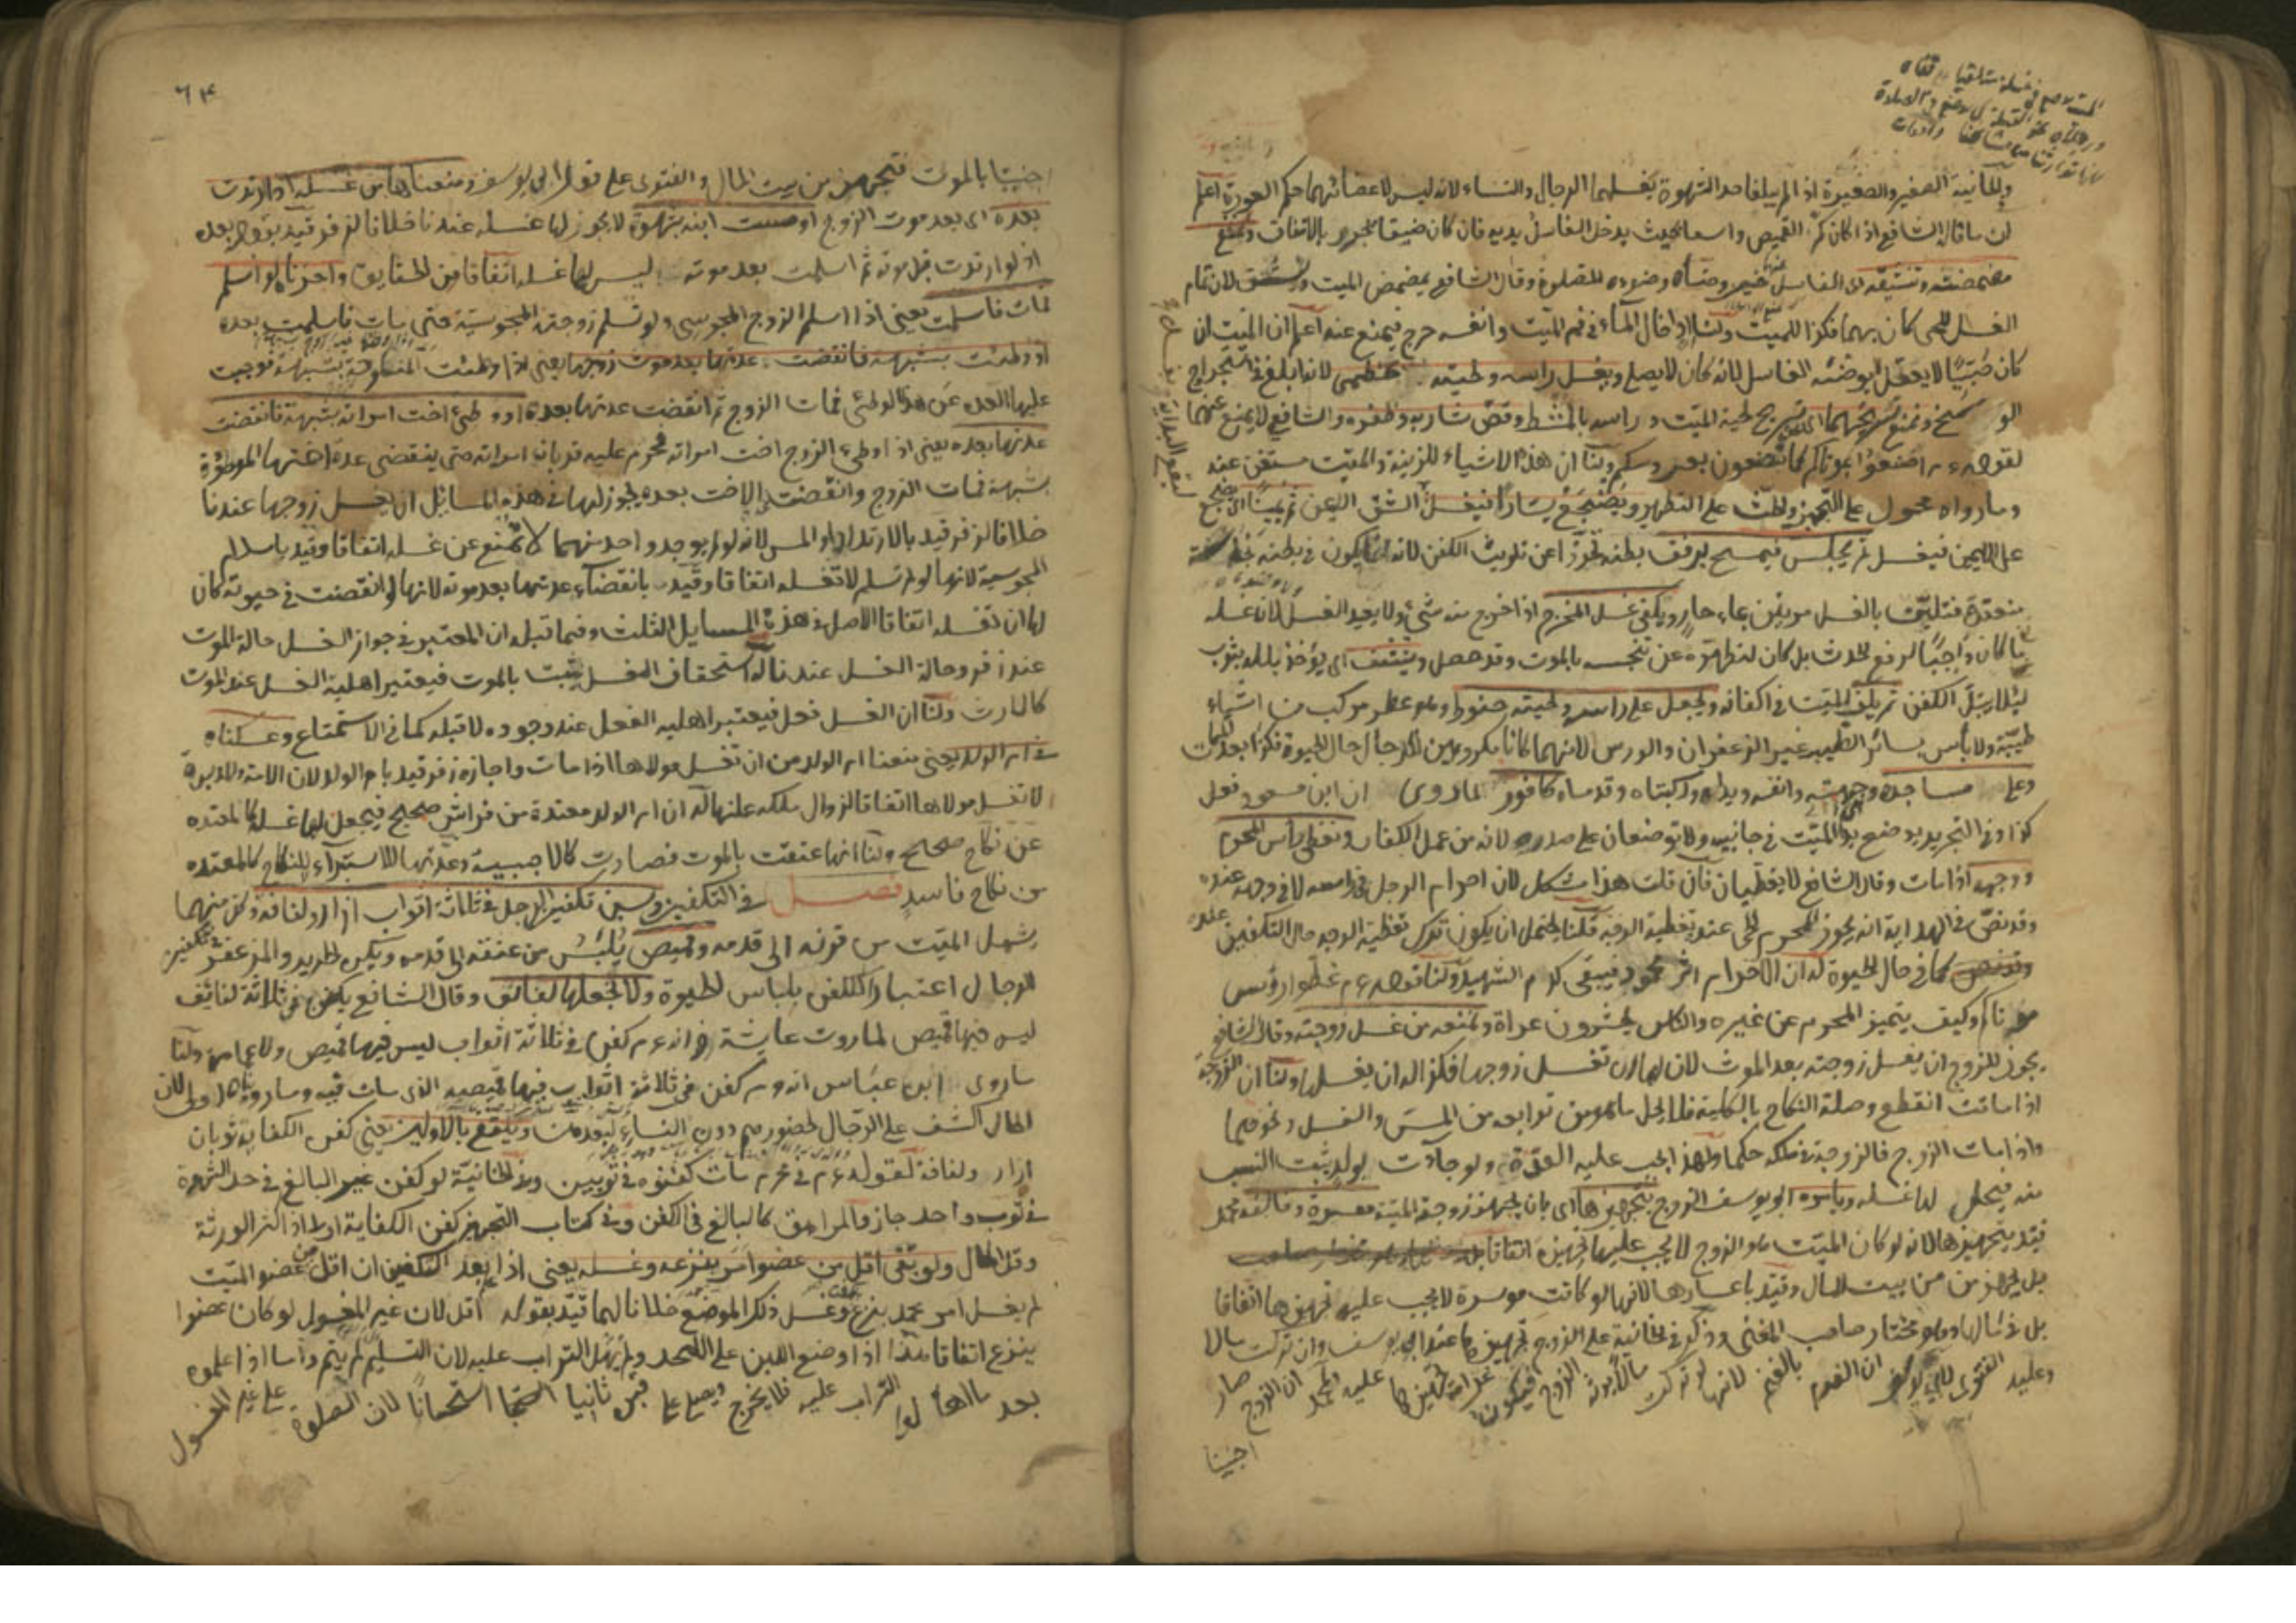 وفي الخانية الصغير والصغيرة اذا لم يبلغا حد الشهوة يغسلهما الرجال والنساء لانه ليس لاعضائهما حكم العورة اعلم
ان ما قال الشافعي اذا كان كم القميص واسعا بحيث يدخل الغاسل يديه فان كان ضيقا يجرد بالاتفاق ونمنع
مضمضته وتنشيقه لان الغاسل وضوءه للصلوة وقال الشافعي يمضمض الميت لان تمام
الغسل للحي كان بهما فكذا للميت ولنا ان ادخال الماء في فم الميت وانفه حرج فيمنع عنه اعلم ان الميت ان
كان صبيا لا يعقل لا يوضئه الغاسل لانه كان لا يصلي ويغسل راسه ولحيته لانه ابلغ في استخراج
الوسخ ونمنع تسريحهما اي تسريح لحية الميت وراسه بالمشط وقص شاربه وظفره والشافعي لا يمنع عنها
لقوله عم اصنعوا بموتاكم كما تصنعون بعروسكم ولنا ان هذه الاشياء للزينة والميت مستغن عنه
وما رواه محمول على التجهيز والحث على التطهير ويضجع يسارا فيغسل الشق اليمن ثم يمينا اي يضجع
على اليمين فيغسل ثم يجلس فيمسح برفق بطنه تحرزا عن تلويث الكفن لانه انما يكون في بطنه نجاسة
منعقدة فتلين بالغسل مرتين بماء حار ويكفي غسل المخرج اذا خرج منه شئ ولا يعيد الغسل لان غسله
ما كان واجبا لرفع الحدث بل كان لتطهره عن تنجسه بالموت وقد حصل وينشف اي يؤخذ بلله بثوب
لئلا يبتل الكفن ثم يلف الميت في اكفانه ويجعل على راسه ولحيته حنوط وهو عطر مركب من اشياء
طيبة ولا بأس بسائر الطيب غير الزعفران والورس لانهما كانا مكروهين للرجال حال الحيوة فكذا بعد الممات
وعلى مساجده وجبهته وانفه ويداه وركبتاه وقدماه كافور لما روي ان ابن مسعود فعل
كذا وفي التجريد يوضع يدا الميت في جانبيه ولا توضعان على صدره لانه من عمل الكفار ونغطي راس المحرم
ووجهه اذا مات وقال الشافعي لا يغطيان فان قلت هذا مشكل لان احرام الرجل في راسه لا في وجهه عنده
وقد نص في الهداية انه يجوز للمحرم الحي عنده تغطية الوجه قلنا يحتمل ان يكون ترك تغطية الوجه حال التكفين عنده
كما في حال الحيوة له ان الاحرام اثر محمود فيبقى كدم الشهيد ولنا قوله عم غطوا رؤس
موتاكم وكيف يتميز المحرم عن غيره والناس يحشرون عراة ونمنعه من غسل زوجته وقال الشافعي
يجوز للزوج ان يغسل زوجته بعد الموت لان لها ان تغسل زوجها فكذا له ان يغسلها ولنا ان الزوجة
اذا ماتت انقطع وصلة النكاح بالكلية فلا يحل ما هو من توابعه من المس والغسل ونحوهما
واذا مات الزوج فالزوجة في ملكه حكما ولهذا يجب عليه العدة ولو جاءت بولد يثبت النسب
منه فيحل لها غسله ويامره ابو يوسف الزوج بتجهيزها اي بان يجهز زوجة الميتة معسرة وخالفه محمد
قيد بتجهيزها لانه لو كان الميت هو الزوج لا يجب عليها تجهيزه اتفاقا
بل يجهز من بيت المال وقيد باعسارها لانها لو كانت موسرة لا يجب عليه تجهيزها اتفاقا
بل في مالها وهو مختار صاحب المغني وذكر في الخانية على الزوج تجهيزها عند ابي يوسف وان تركت مالا
وعليه الفتوى لابي يوسف ان الغرم بالغنم لانها لو تركت مالا يرثه الزوج فيكون تجهيزها عليه ولمحمد ان الزوج صار
اجنبيا
٦٤
اجنبيا بالموت فتجهز من بيت المال والفتوى على قول ابي يوسف ومنعناها من غسله اذا ارتدت
بعده اي بعد موت الزوج او مست ابنه بشهوة لا يجوز لها غسله عندنا خلافا لزفر قيد بقوله بعده
اذ لو ارتدت قبل موته ثم اسلمت بعد موته ليس لها غسله اتفاقا من الحقايق واجزناه لو اسلم
فمات فاسلمت يعني اذا اسلم الزوج المجوسي ولم تسلم زوجته المجوسية حتى مات فاسلمت بعده
او وطئت بشبهة فانقضت عدتها بعد موت زوجها يعني اذا وطئت المنكوحة بشبهة فوجبت
عليها العدة عن هذا الوطئ فمات الزوج ثم انقضت عدتها بعده او وطئ اخت امراته بشبهة فانقضت
عدتها بعده يعني اذا وطئ الزوج اخت امراته فحرم عليه قربان امراته حتى ينقضي عدة اختها الموطؤة
بشبهة فمات الزوج وانقضت الاخت بعده يجوز لها في هذه المسائل ان يغسل زوجها عندنا
خلافا لزفر قيد بالارتداد او المس لانه لو لم يوجد واحد منهما لا تمنع عن غسله اتفاقا وقيد باسلام
المجوسية لانها لو لم تسلم لا تغسله اتفاقا وقيد بانقضاء عدتهما بعد موته لانها لو انقضت في حيوته كان
لها ان تغسله اتفاقا الاصل في هذه المسايل الثلث وفيما قبله ان المعتبر في جواز الغسل حالة الموت
عند زفر وحالة الغسل عندنا له استحقاق الغسل يثبت بالموت فيعتبر اهلية الغسل عند الموت
كالارث ولنا ان الغسل فعل فيعتبر اهليه الفعل عند وجوده لا قبله كما في الاستمتاع وعكسناه
في ام الولد يعني منعنا ام الولد من ان تغسل مولاها اذا مات واجازه زفر قيد بام الولد لان الامة والمدبرة
لا تغسل مولاها اتفاقا لزوال ملكه عنها له ان ام الولد معتدة من فراش صحيح فيجعل لها غسله كالمعتده
عن نكاح صحيح ولنا انها عتقت بالموت فصارت كالاجنبية وعدتها للاستبراء لا للنكاح كالمعتده
من نكاح فاسد فصل في التكفين وسن تكفين الرجل في ثلاثة اثواب ازار ولفافة وكل منهما
يشمل الميت من قرنه الى قدمه وقميص يلبس من عنقه الى قدمه ويكره الحرير والمزعفر في تكفين
الرجال اعتبارا للكفن بلباس الحيوة ولا نجعلها لفائف وقال الشافعي يكفن في ثلاثة لفائف
ليس فيها قميص لما روت عائشة انه عم كفن في ثلاثة اثواب ليس فيها قميص ولا عمامة ولنا
ما روى ابن عباس انه عم كفن في ثلاثة اثواب فيها قميصه الذي مات فيه وما رويناه اولى لان
الحال اكشف على الرجال لحضورهم دون النساء لبعدهن ويكتفي بالاولين يعني كفن الكفاية ثوبان
ازار ولفافة لقوله عم في محرم مات كفنوه في ثوبين وفي الخانية لو كفن غير البالغ في حد الشهوة
في ثوب واحد جاز والمراهق كالبالغ في الكفن وفي كتاب التجهيز كفن الكفاية اولى اذا كثر الورثة
وقل المال ولو بقي اقل من عضو امر بنزعه وغسله يعني اذا بعد التكفين ان اقل من عضو الميت
لم يغسل امر محمد بنزع الكفن وغسل ذلك الموضع خلافا لهما قيد بقوله اقل لان غير المغسول لو كان عضوا
ينزع اتفاقا هذا اذا وضع اللبن على اللحد ولم يهل التراب عليه لان التسليم لم يتم واما اذا علموه
بعد ما اهالوا التراب عليه فلا يخرج ويصلى على قبره ثانيا استحسانا لان الصلوة على غير المغسول